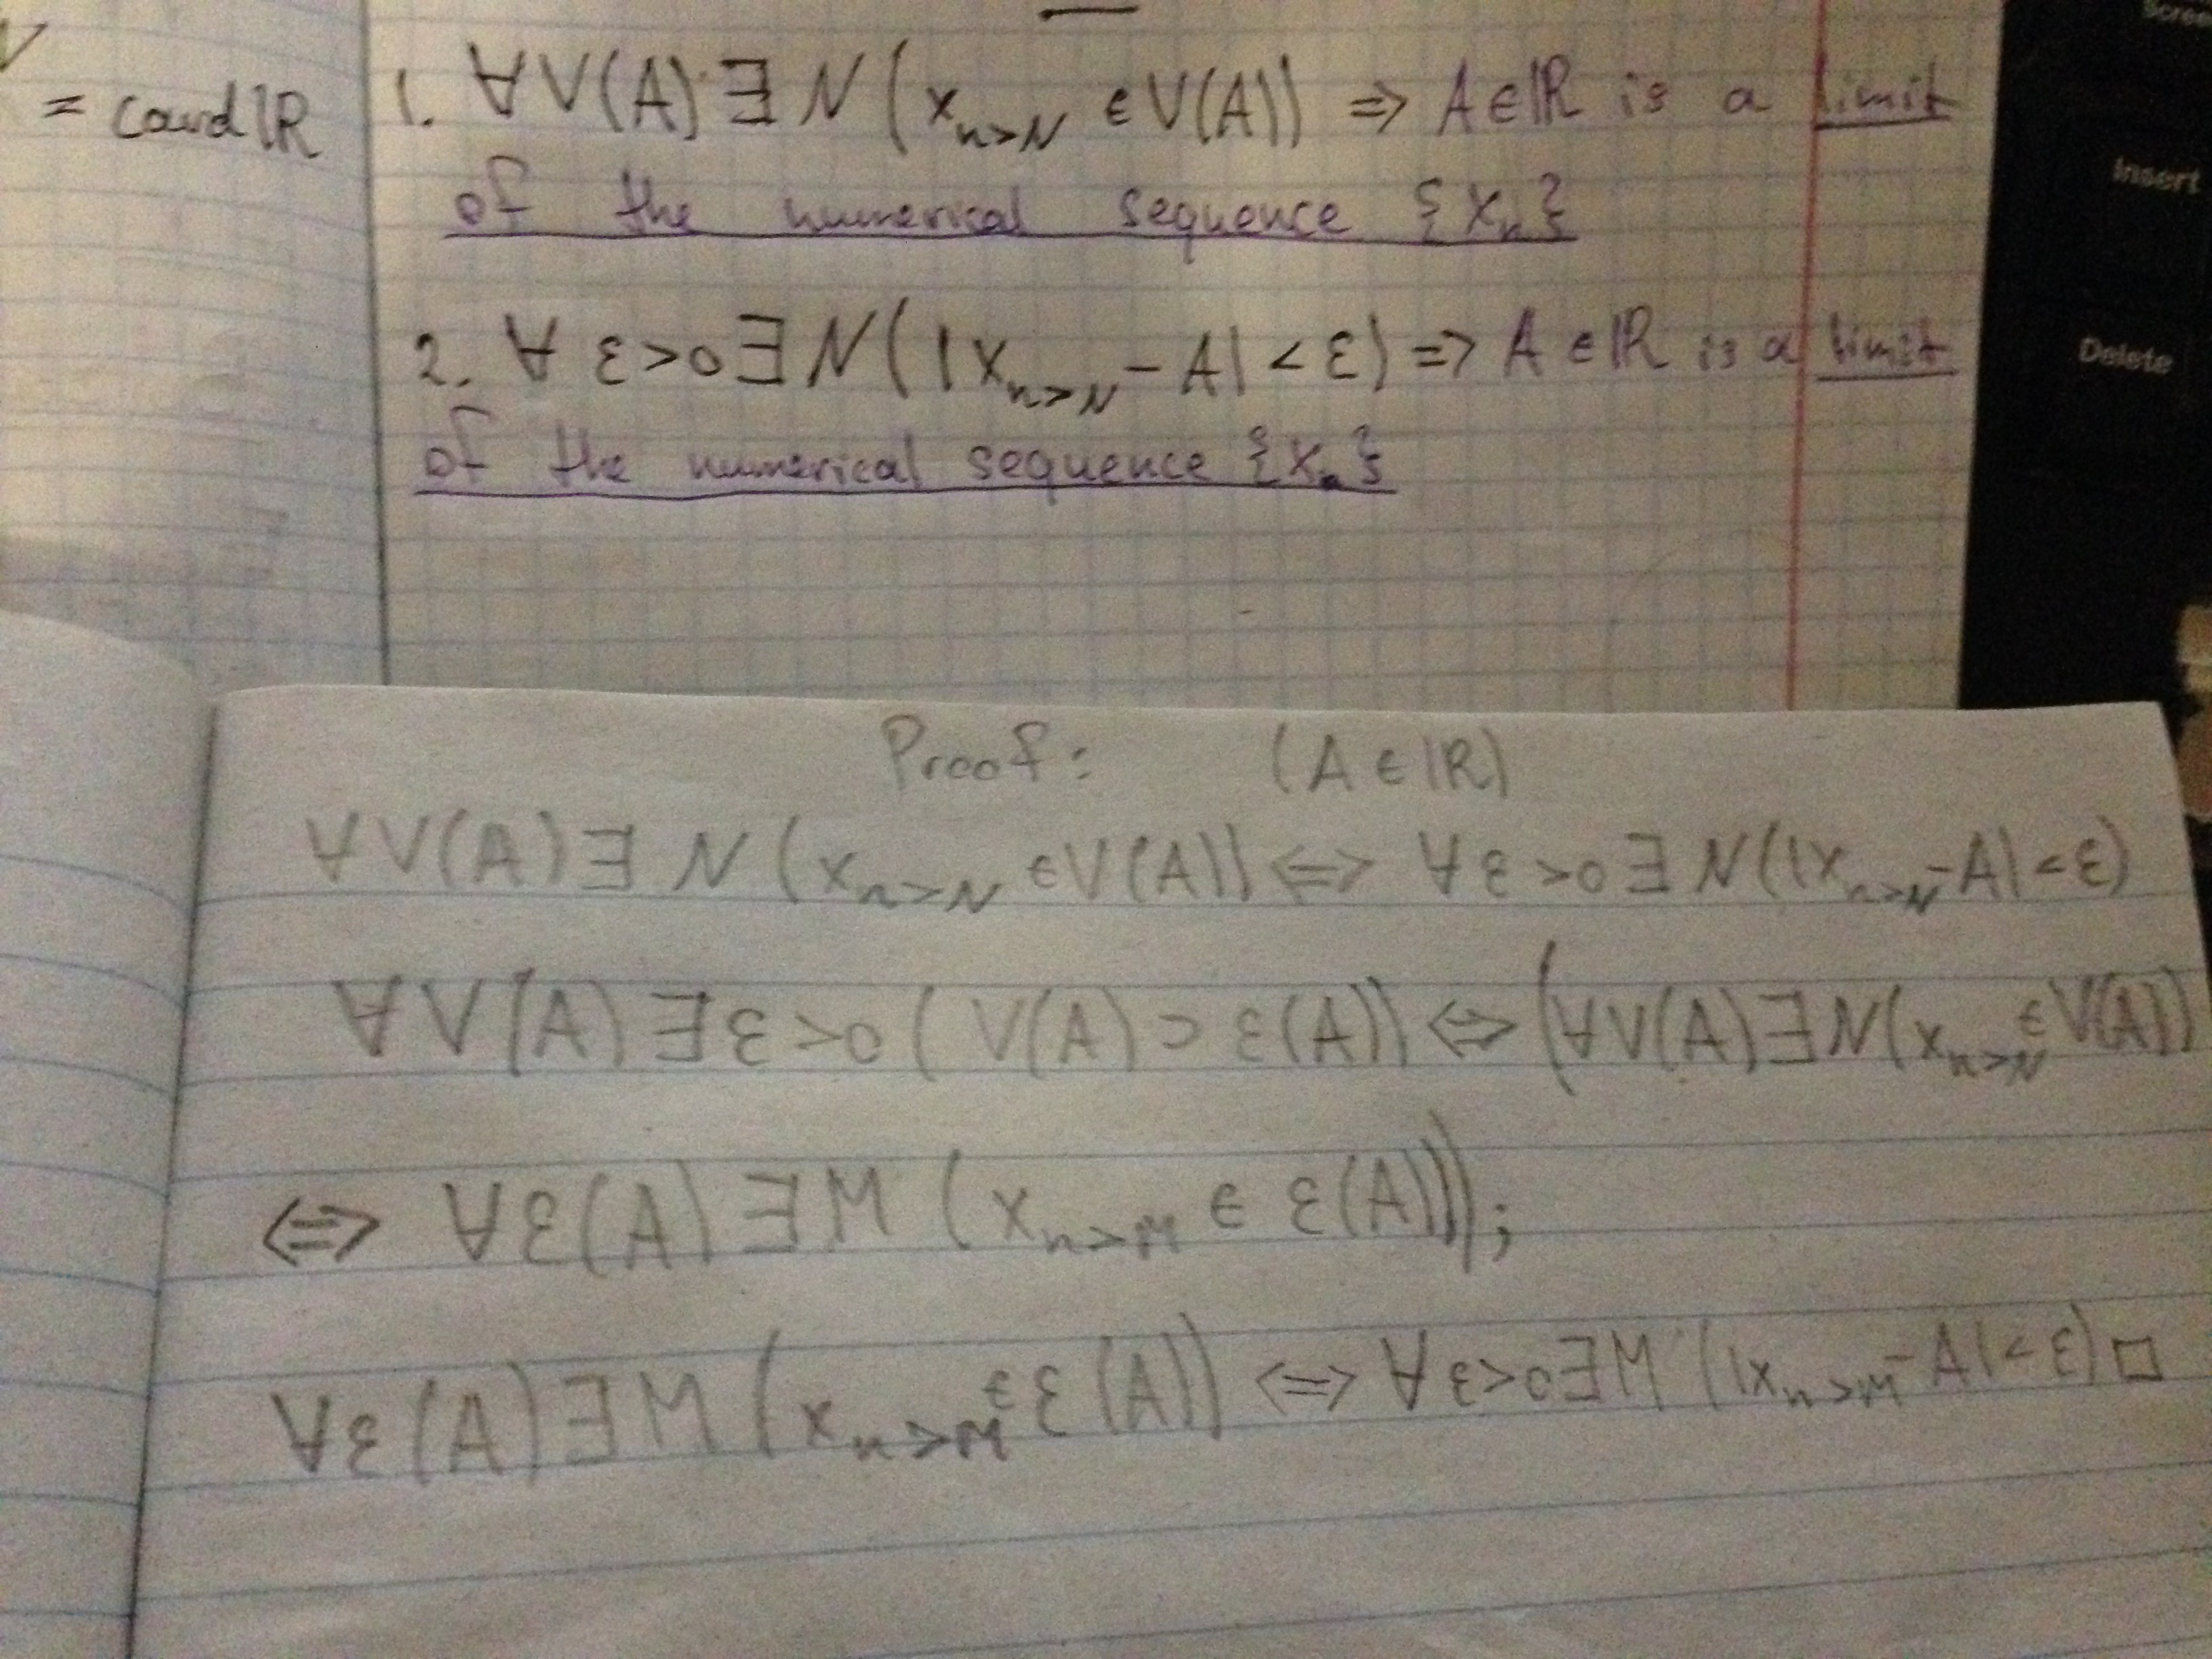 = card ℝ
1. ∀V(A) ∃N (x_{n>N} ∈ V(A)) ⇒ A∈ℝ is a limit
of the numerical sequence {x_n}
2. ∀ ε>0 ∃N (|x_{n>N} - A| < ε) ⇒ A∈ℝ is a limit
of the numerical sequence {x_n}
Insert
Delete
Proof: (A∈ℝ)
∀V(A) ∃ N (x_{n>N} ∈ V(A)) ⇔ ∀ε>0 ∃ N(|x_{n>N} - A| < ε)
∀V(A) ∃ε>0 (V(A) ⊃ ε(A)) ⇔ (∀V(A) ∃N(x_{n>N} ∈ V(A))
⇔ ∀ε(A) ∃M (x_{n>M} ∈ ε(A)));
∀ε(A) ∃M (x_{n>M} ∈ ε(A)) ⇔ ∀ε>0 ∃M (|x_{n>M} - A| < ε) □